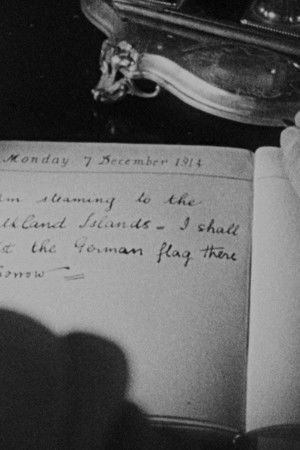 Monday 7 December 1914
am steaming to the
lkland Islands - I shall
st the German flag there
orrow